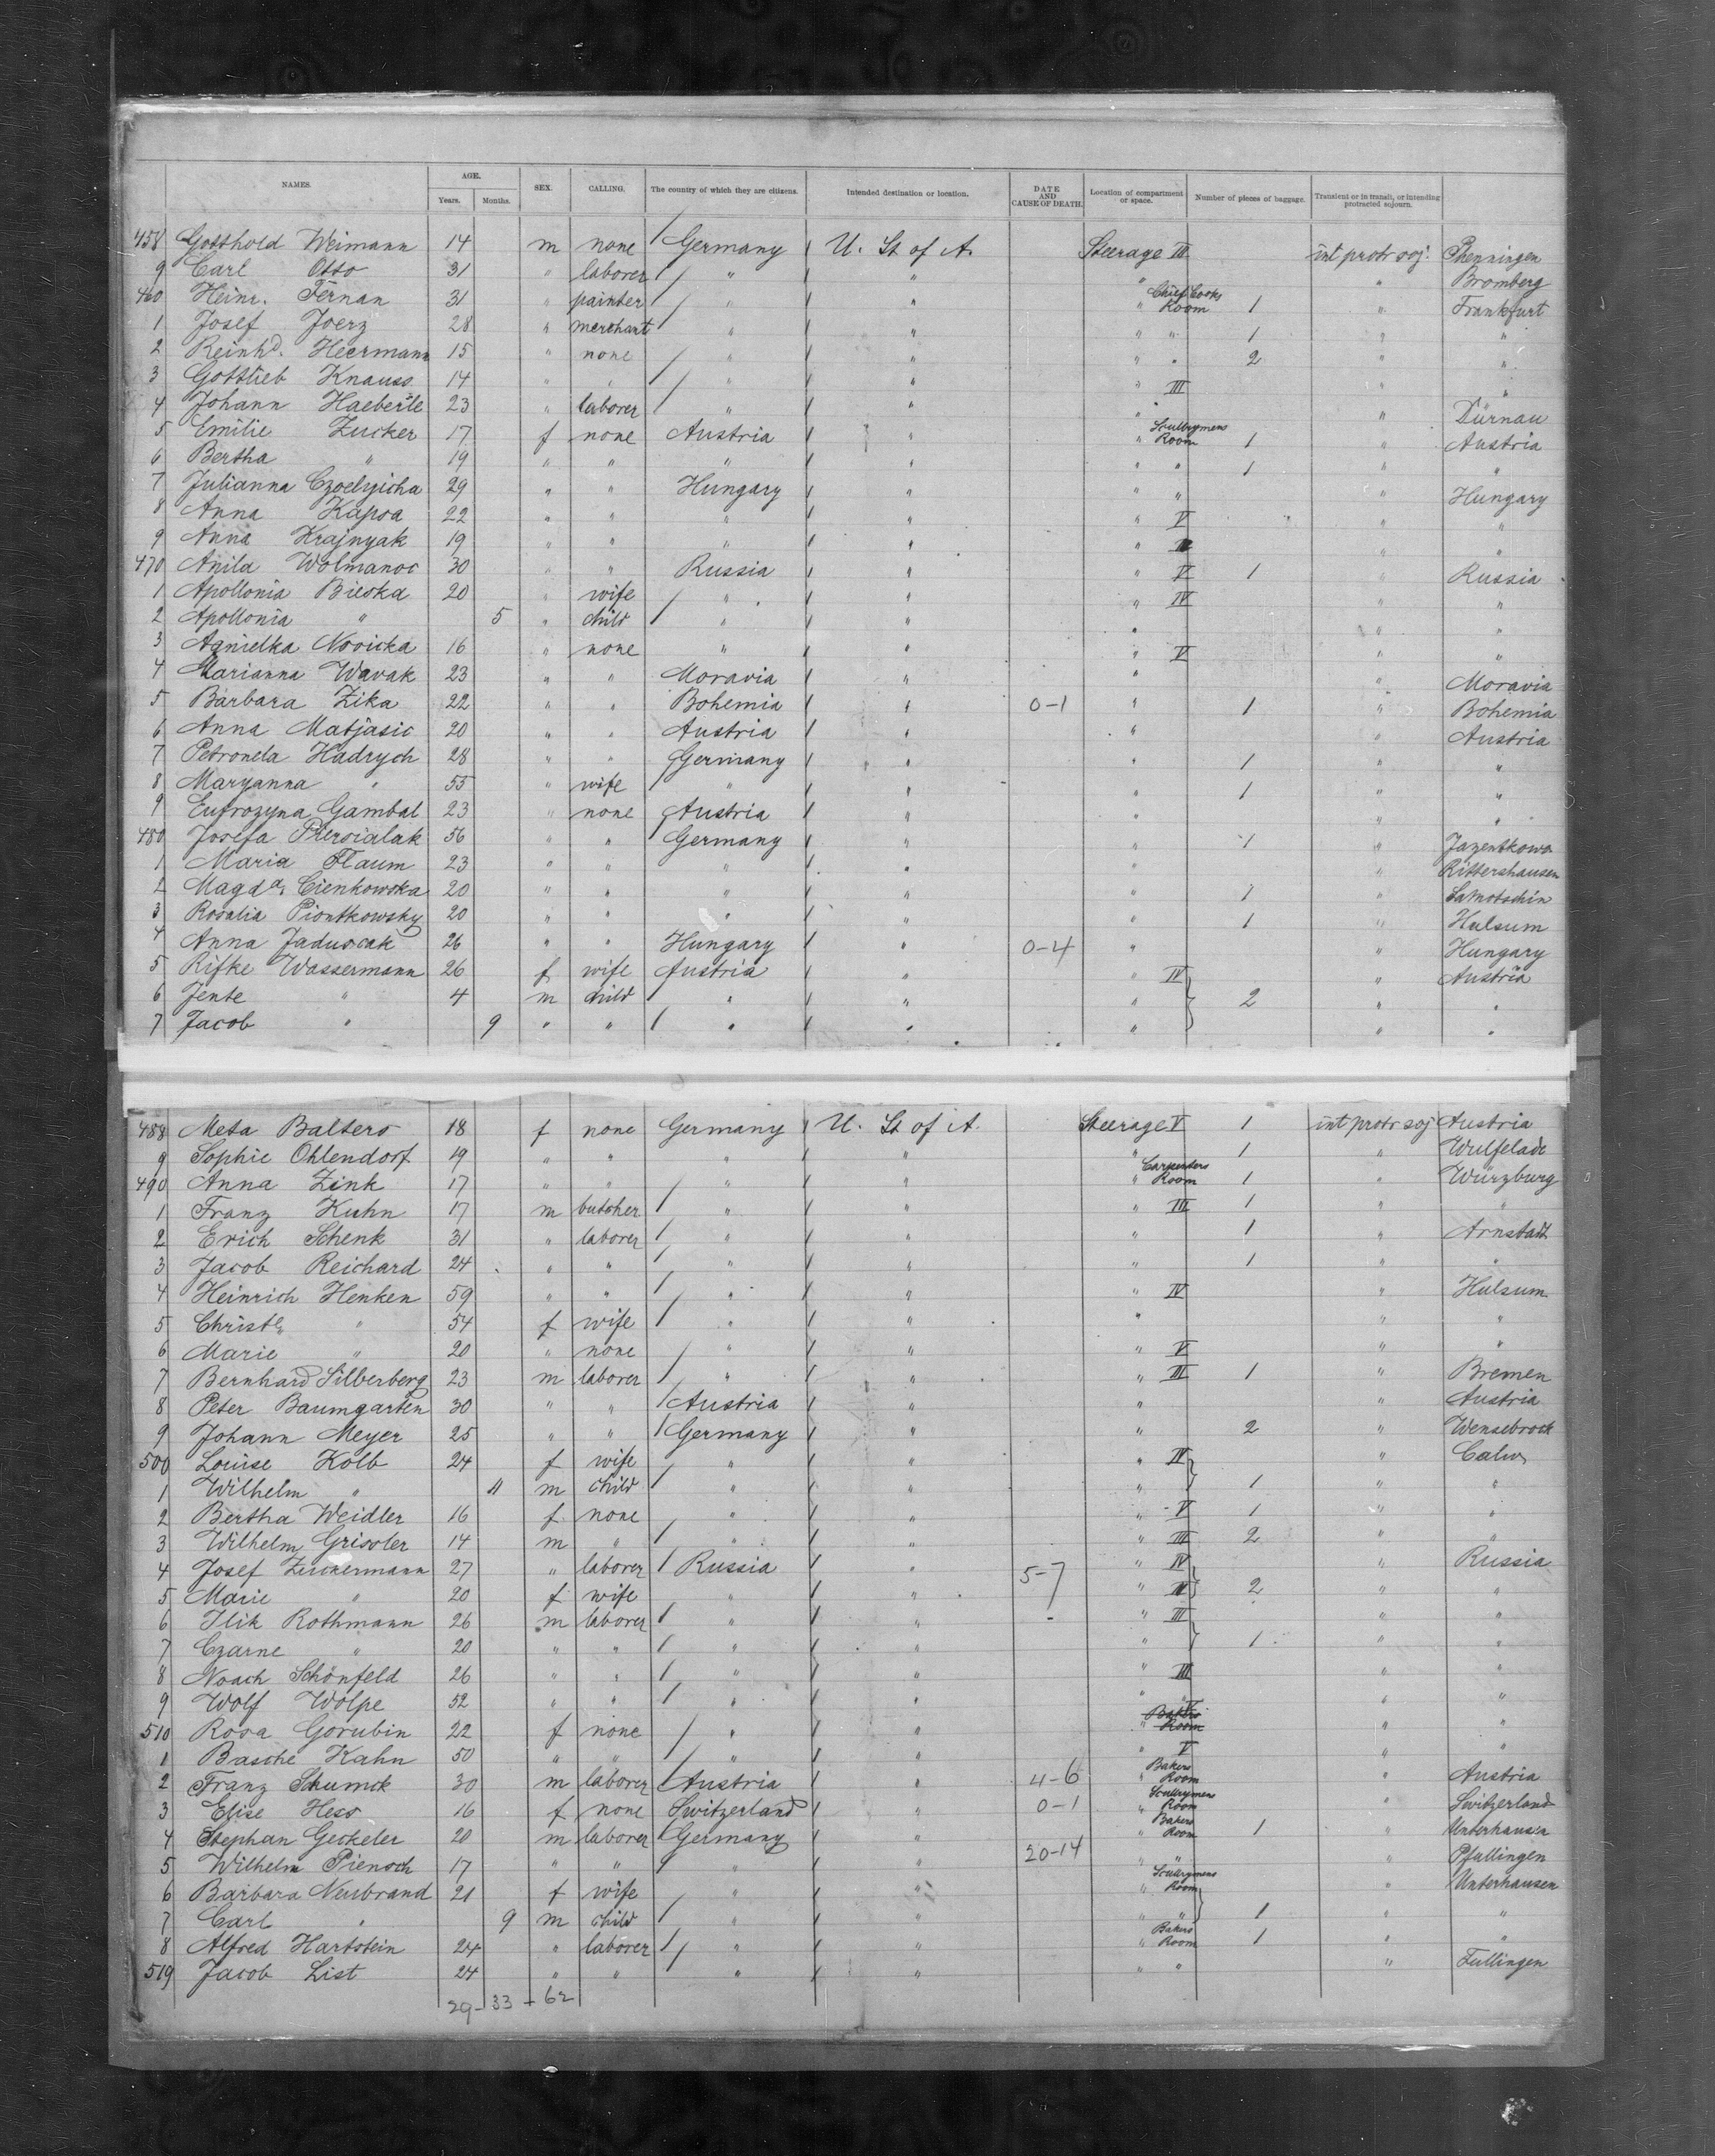 NAMES. AGE. Years. Months. SEX. CALLING. The country of which they are citizens. Intended destination or location. DATE AND CAUSE OF DEATH. Location of compartment or space. Number of pieces of baggage. Transient or in transit, or intending protracted sojourn.
458 Gotthold Weimann 14 m none / Germany / U. St of A. Steerage III int protr soj.
9 Carl Otto 31 " laborer / " / " " " Bromberg
460 Heinr. Fernan 31 " painter / " / " " Chief Cooks Room 1 " Frankfurt
1 Josef Joerz 28 " merchant / " / " " " 1 " "
2 Reinhd. Heermann 15 " none / " / " " " 2 " "
3 Gottlieb Knauss 14 " " / " / " " III " "
4 Johann Haeberle 23 " laborer / " / " " " Dürnau
5 Emilie Zucker 17 f none Austria / " " Scullrymens Room 1 " Austria
6 Bertha " 19 " " " / " " " 1 " "
7 Julianna 29 " " Hungary / " " " " Hungary
8 Anna Kapsa 22 " " " / " " V " "
9 Anna Krajnyak 19 " " " / " " " "
470 Anila 30 " " Russia / " " V 1 " Russia
1 Apollonia Bieska 20 " wife / " / " " IV " "
2 Apollonia " 5 " child / " / " " " "
3 Agnielka Novicka 16 " none " / " " V " "
4 Marianna Wavak 23 " " Moravia / " " " Moravia
5 Barbara Zika 22 " " Bohemia / " 0-1 " 1 " Bohemia
6 Anna Matjasic 20 " " Austria / " " " Austria
7 Petronela Hadrych 28 " " Germany / " " 1 " "
8 Maryanna " 55 " wife " / " " 1 " "
9 Eufrozyna Gambal 23 " none Austria / " " " "
480 Josefa 56 " " Germany / " " 1 "
1 Maria Flaum 23 " " " / " " " Rittershausen
2 Magda. Cienkowska 20 " " " / " " 1 " Samotschin
3 Rosalia Piontkowsky 20 " " " / " " 1 " Hulsum
4 Anna Jaduscak 26 " " Hungary / " 0-4 " " Hungary
5 Rifke Wassermann 26 f wife Austria / " " IV " Austria
6 Jente " 4 m child / " / " " 2 " "
7 Jacob " 9 " " / " / " " " "
488 Meta Balters 18 f none Germany / U. St of A. Steerage V 1 int protr soj Austria
9 Sophie Ohlendorf 19 " " " / " " 1 " Wulfelade
490 Anna Zink 17 " " / " / " " Carpenters Room 1 " Würzburg
1 Franz Kuhn 17 m butcher / " / " " III 1 " "
2 Erich Schenk 31 " laborer / " / " " 1 " Arnstadt
3 Jacob Reichard 24 " " / " / " " 1 " "
4 Heinrich Henken 59 " " / " / " " IV " Hulsum
5 Christe " 54 f wife / " / " " " "
6 Marie " 20 " none / " / " " V " "
7 Bernhard Silberberg 23 m laborer / " / " " III 1 " Bremen
8 Peter Baumgarten 30 " " / Austria / " " " Austria
9 Johann Meyer 25 " " / Germany / " " 2 " Wensebrock
500 Louise Kolb 24 f wife / " / " " IV " Calw
1 Wilhelm " 11 m child / " / " " 1 " "
2 Bertha Weidler 16 f none / " / " " V 1 " "
3 Wilhelm Grissler 14 m " / " / " " III 2 " "
4 Josef Zuckermann 27 " laborer / Russia / " 5-7 " IV " Russia
5 Marie " 20 f wife " / " " IV 2 " "
6 Ilik Rothmann 26 m laborer / " / " " III " "
7 Czarne " 20 " " / " / " " 1 " "
8 Noach Schönfeld 26 " " / " / " " III " "
9 Wolf Wolpe 52 " " / " / " " " " "
510 Rosa Gorubin 22 f none / " / " " Bakers Room " "
1 Basche Kahn 50 " " / " / " " V " "
2 Franz Schumck 30 m laborer / Austria / " 4-6 " Bakers Room " Austria
3 Elise Hess 16 f none Switzerland / " 0-1 " Scullrymens Room " Switzerland
4 Stephan Geckeler 20 m laborer / Germany / " " Bakers Room 1 " Unterhausen
5 Wilhelm Pienoch 17 " " / " / " 20-14 " " " Pfullingen
6 Barbara Neubrand 21 f wife / " / " " Scullrymens Room " Unterhausen
7 Carl " 9 m child / " / " " " 1 " "
8 Alfred Hartstein 24 " laborer / " / " " Bakers Room 1 " "
519 Jacob List 24 " " / " / " " " " Fullingen
29-33-62